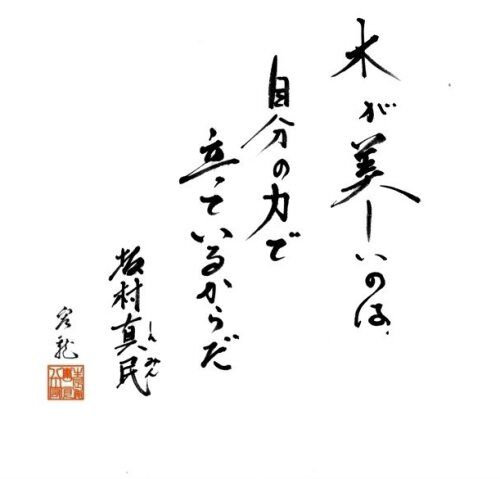 木が美しいのは、
自分の力で
立っているからだ
坂村真民
しんみん